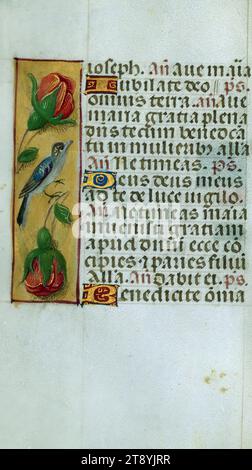 ioseph. An̄ aue m̄ia
Iubilate deo ps.
omnis terra. an̄ aue
maria gratia plena
dn̄s tecum benedc̄ta
tu in mulierib9 alla
An̄ Ne timeas. ps.
Deus deus meus
ad te de luce uigilo.
An̄ Ne timeas maria
inuenisti gratiam
apud dn̄m ecce cō
cipies ⁊ paries filiū
Alla. An̄ Dabit ei. ps.
Benedicite om̄ia
alamy
Image ID: 2A9YJRR
www.alamy.com